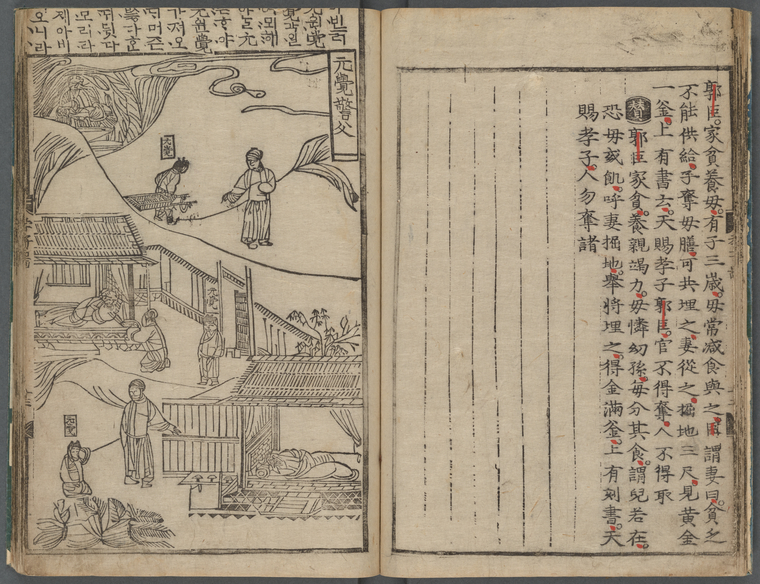 郭巨家貧養母。有子三歲。母常減食與之。巨謂妻曰。貧乏
不能供給。子奪母膳。可共埋之。妻從之。掘地三尺。見黃金
一釜。上有書云。天賜孝子郭巨。官不得奪。人不得取
贊 郭巨家貧。養親竭力。母憐幼孫。每分其食。謂兒若在
恐母或飢。呼妻掘地。擧將埋之。得金滿釜。上有刻書。天
賜孝子。人勿奪諸
元覺
가져오
모리라
제아비
오니라
元覺警父
元覺
元覺
元覺